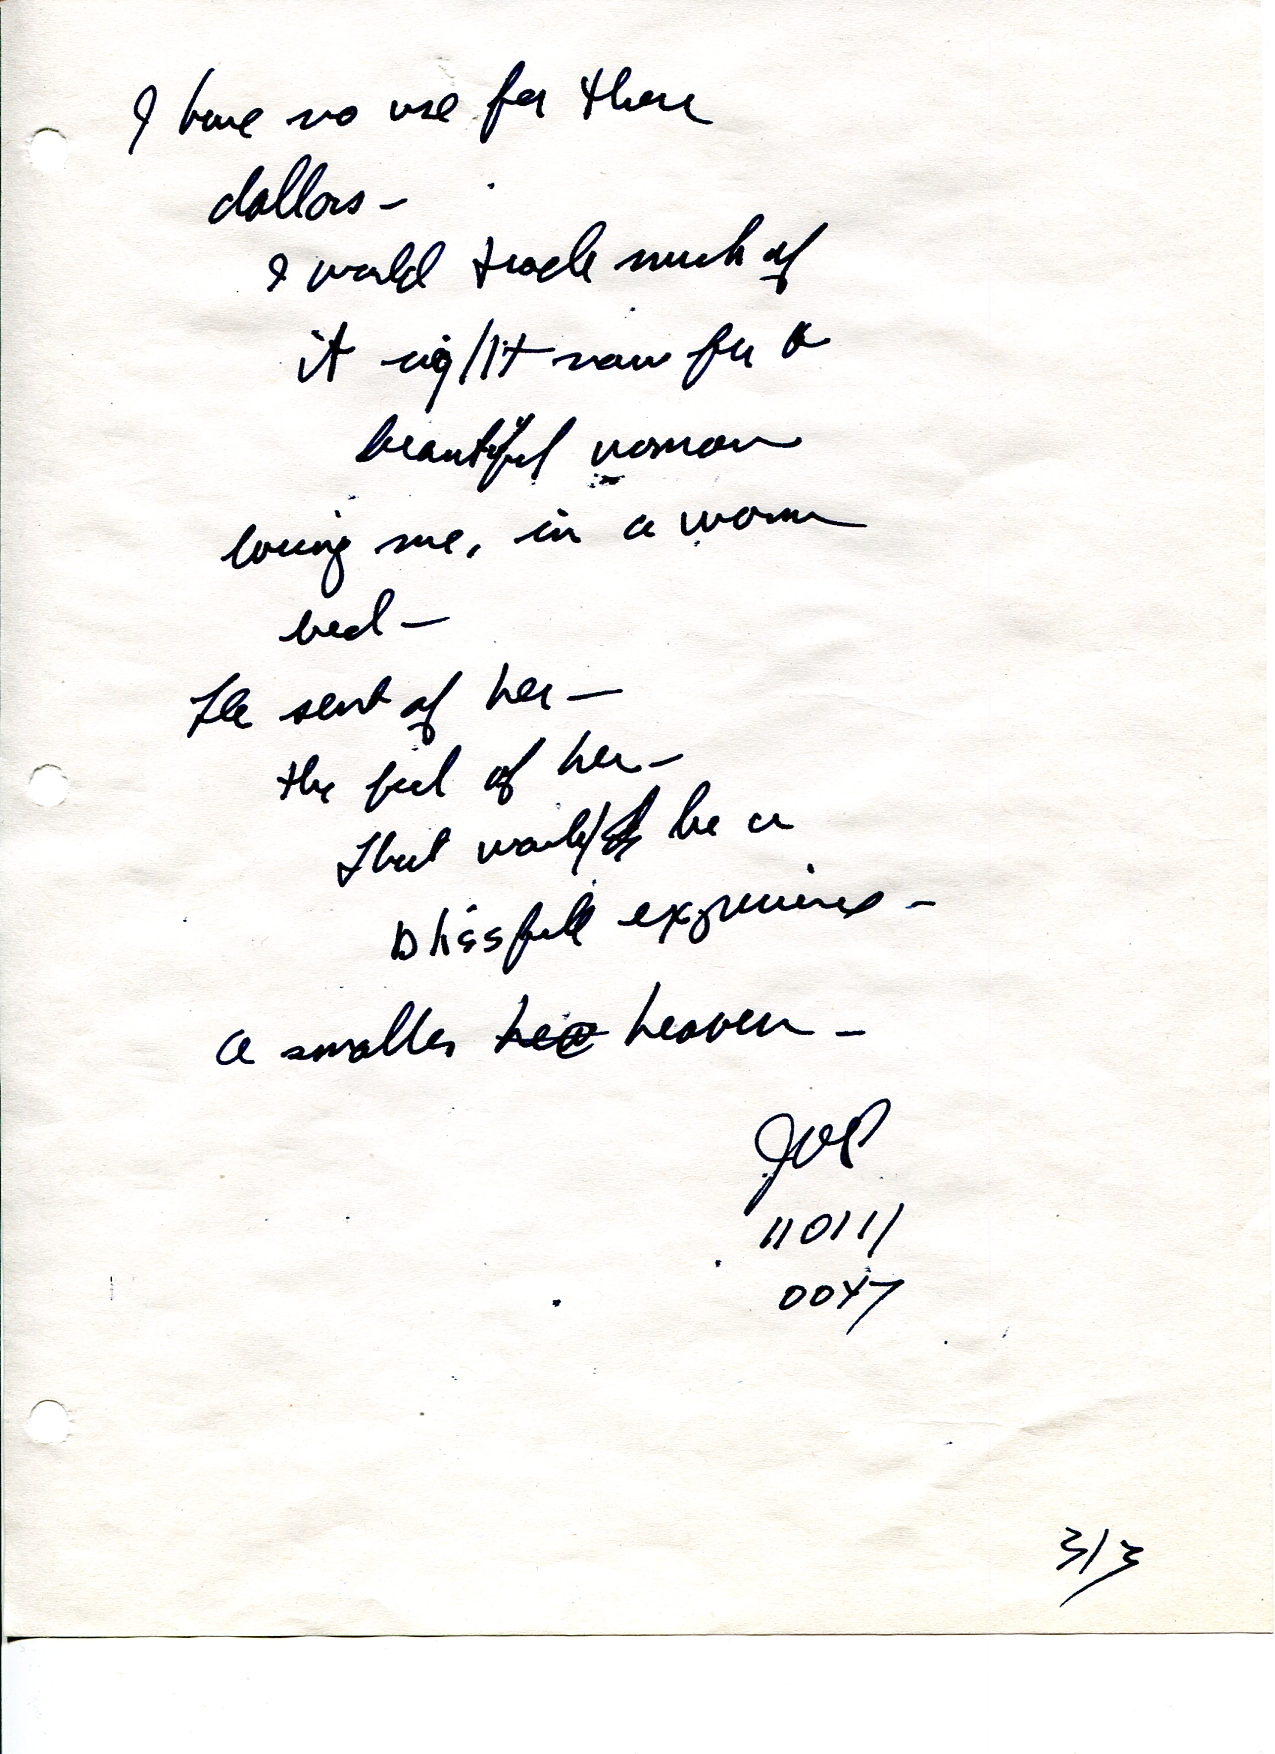 I have no use for these
dollars -
I would trade much of
it right now for a
beautiful woman
loving me, in a warm
bed -
The sent of her -
the feel of her -
That would be a
blissfull experience -
a smaller heaven -
JVP
110111
0047
3/3